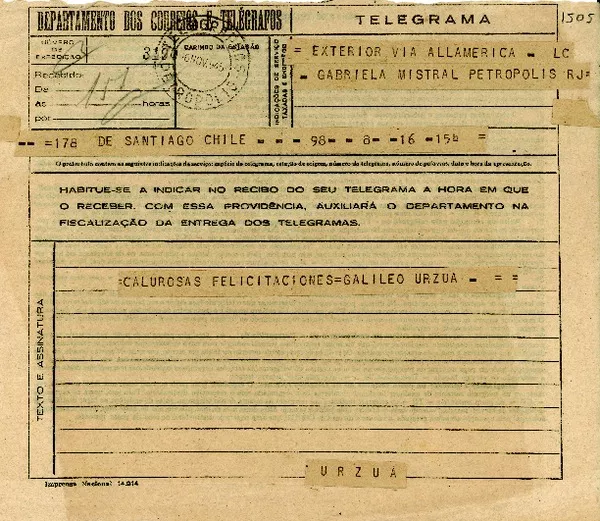 DEPARTAMENTO DOS CORREIOS E TELÉGRAFOS
TELEGRAMA
1505
NÚMERO DE EXPEDIÇÃO
CARIMBO DA ESTAÇÃO
NOV. 945
PETROPOLIS
Recebido
De 151
às horas
por
INDICAÇÕES DE SERVIÇO TAXADAS E ENDEREÇO
= EXTERIOR VIA ALLAMERICA - LC
- GABRIELA MISTRAL PETROPOLIS RJ=
-- =178 DE SANTIAGO CHILE -- 98- 8- -16 -15H =
O preâmbulo contém as seguintes indicações de serviço: espécie do telegrama, estação de origem, número do telegrama, número de palavras, data e hora da apresentação.
HABITUE-SE A INDICAR NO RECIBO DO SEU TELEGRAMA A HORA EM QUE
O RECEBER. COM ESSA PROVIDÊNCIA, AUXILIARÁ O DEPARTAMENTO NA
FISCALIZAÇÃO DA ENTREGA DOS TELEGRAMAS.
TEXTO E ASSINATURA
=CALUROSAS FELICITACIONES=GALILEO URZUA - = =
URZUA
Imprensa Nacional 14.014